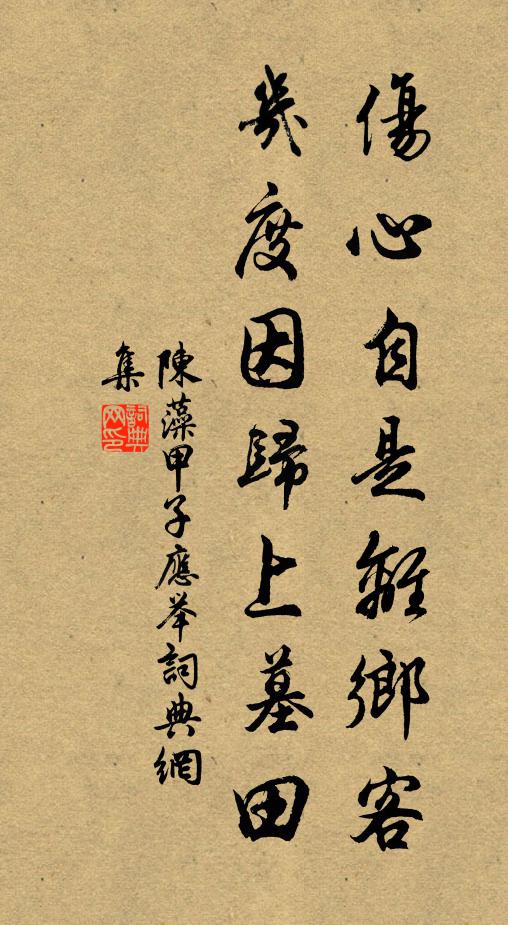 傷心自是離鄉客
幾度因歸上墓田
陳藻甲子應举詞典網
集
詞典
网印